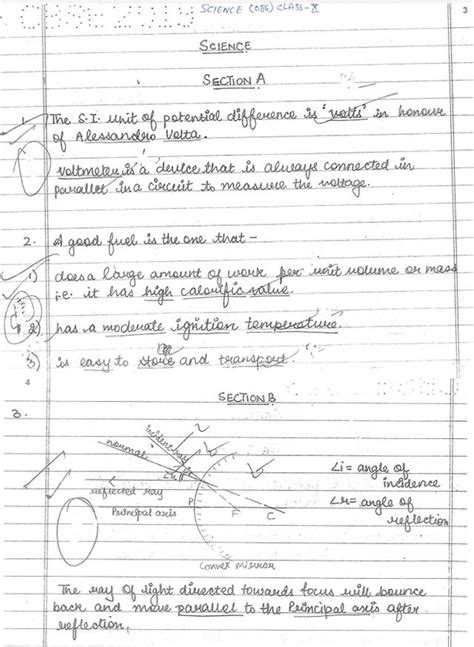 CBSE 2019
SCIENCE (086) CLASS-X
3
SCIENCE
SECTION A
1. The S.I. unit of potential difference is 'volts' in honour
of Alessandro Volta.
Voltmeter is a device that is always connected in
parallel in a circuit to measure the voltage.
2. A good fuel is the one that –
1) does a large amount of work per unit volume or mass
i.e. it has high calorific value.
2) has a moderate ignition temperature.
3) is easy to store and transport.
4
SECTION B
3.
incident ray
normal
∠i
∠r
reflected ray
Principal axis
P
F
C
∠i = angle of
incidence
∠r = angle of
reflection
Convex Mirror
The ray of light directed towards focus will bounce
back and move parallel to the Principal axis after
reflection.